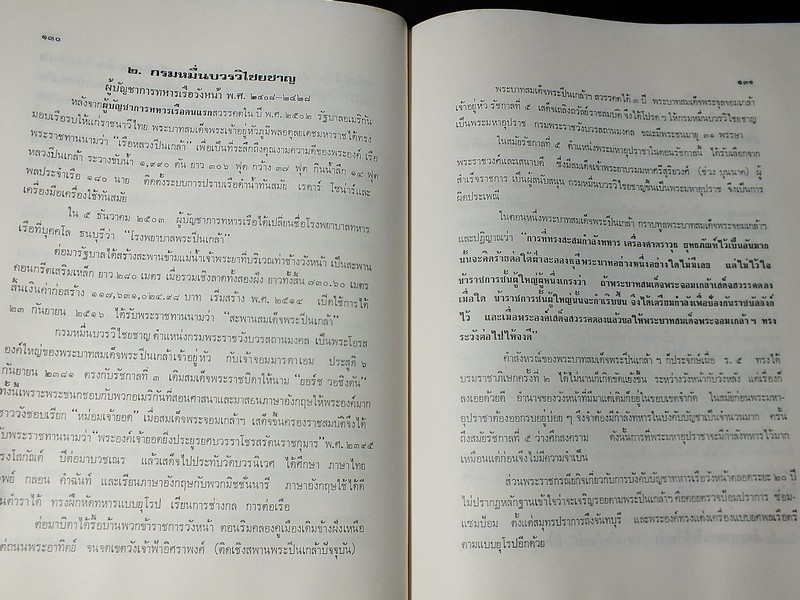 ๑๓๐
๒. กรมหมื่นบวรวิไชยชาญ
ผู้บัญชาการทหารเรือวังหน้า พ.ศ. ๒๔๐๘–๒๔๒๘
หลังจากผู้บัญชาการทหารเรือคนแรกสวรรคตใน ปี พ.ศ. ๒๕๐๒ รัฐบาลอเมริกัน
มอบเรือรบให้แก่ราชนาวีไทย พระบาทสมเด็จพระเจ้าอยู่หัวภูมิพลอดุลยเดชมหาราชได้ทรง
พระราชทานนามว่า “เรือหลวงปิ่นเกล้า” เพื่อเป็นที่ระลึกถึงคุณงามความดีของพระองค์ เรือ
หลวงปิ่นเกล้า ระวางขับน้ำ ๑,๙๙๐ ตัน ยาว ๓๐๖ ฟุต กว้าง ๓๗ ฟุต กินน้ำลึก ๑๔ ฟุต
พลประจำเรือ ๑๘๐ นาย ติดตั้งระบบการปราบเรือดำน้ำทันสมัย เรดาร์ โซน่าร์และ
เครื่องมือเครื่องใช้ทันสมัย
ใน ๕ ธันวาคม ๒๕๐๓ ผู้บัญชาการทหารเรือได้เปลี่ยนชื่อโรงพยาบาลทหาร
เรือที่บุคคโล ธนบุรีว่า “โรงพยาบาลพระปิ่นเกล้า”
ต่อมารัฐบาลได้สร้างสะพานข้ามแม่น้ำเจ้าพระยาที่บริเวณท่าช้างวังหน้า เป็นสะพาน
คอนกรีตเสริมเหล็ก ยาว ๒๘๐ เมตร เมื่อรวมเชิงลาดทั้งสองฝั่ง ยาวทั้งสิ้น ๗๓๐.๖๐ เมตร
สิ้นเงินค่าก่อสร้าง ๑๑๗,๖๓๑,๐๒๔.๙๘ บาท เริ่มสร้าง พ.ศ. ๒๕๑๔ เปิดใช้การได้
๒๓ กันยายน ๒๕๑๖ ได้รับพระราชทานนามว่า “สะพานสมเด็จพระปิ่นเกล้า”
กรมหมื่นบวรวิไชยชาญ ตำแหน่งกรมพระราชวังบวรสถานมงคล เป็นพระโอรส
องค์ใหญ่ของพระบาทสมเด็จพระปิ่นเกล้าเจ้าอยู่หัว กับเจ้าจอมมารดาเอม ประสูติ ๖
กันยายน ๒๓๘๑ ตรงกับรัชกาลที่ ๓ เดิมสมเด็จพระราชบิดาให้นาม “ยอร์ช วอชิงตัน”
ทั้งนี้เพราะพระชนกชอบกับพวกอเมริกันที่สอนศาสนาและมาสอนภาษาอังกฤษให้พระองค์มาก
ชาววังชอบเรียก “หม่อมเจ้ายอด” เมื่อสมเด็จพระจอมเกล้าฯ เสด็จขึ้นครองราชสมบัติจึงได้
รับพระราชทานนามว่า “พระองค์เจ้ายอดยิ่งประยูรยศบวรราโชรสรัตนราชกุมาร” พ.ศ. ๒๓๙๕
ทรงโสกัณต์ ปีต่อมาบวชเณร แล้วเสด็จไปประทับวัดบวรนิเวศ ได้ศึกษา ภาษาไทย
กลอน คำฉันท์ และเรียนภาษาอังกฤษกับพวกมิชชั่นนารี ภาษาอังกฤษใช้ได้ดี
ตำราได้ ทรงฝึกหัดทหารแบบยุโรป เรียนการช่างกล การต่อเรือ
ต่อมาบิดาได้รื้อบ้านพวกข้าราชการวังหน้า ตอนริมคลองคูเมืองเดิมข้างฝั่งเหนือ
แต่ถนนพระอาทิตย์ จนจดเขตวังเจ้าฟ้าอิศราพงศ์ (ติดเชิงสพานพระปิ่นเกล้าปัจจุบัน)
๑๓๑
พระบาทสมเด็จพระปิ่นเกล้าฯ สวรรคตได้ ๓ ปี พระบาทสมเด็จพระจุลจอมเกล้า
เจ้าอยู่หัว รัชกาลที่ ๕ เสด็จเถลิงถวัลย์ราชสมบัติ จึงได้โปรดฯ ให้กรมหมื่นบวรวิไชยชาญ
เป็นพระมหาอุปราช กรมพระราชวังบวรสถานมงคล ขณะมีพระชนมายุ ๓๑ พรรษา
ในสมัยรัชกาลที่ ๕ ตำแหน่งพระมหาอุปราชในตอนรัชกาลนี้ ได้รับเลือกจาก
พระราชวงศ์และเสนาบดี ซึ่งมีสมเด็จเจ้าพระยาบรมมหาศรีสุริยวงศ์ (ช่วง บุนนาค) ผู้
สำเร็จราชการ เป็นผู้สนับสนุน กรมหมื่นบวรวิไชยชาญขึ้นเป็นพระมหาอุปราช จึงเป็นการ
ผิดประเพณี
ในตอนหนึ่งพระบาทสมเด็จพระปิ่นเกล้า กราบทูลพระบาทสมเด็จพระจอมเกล้าฯ
และปฏิญาณว่า “การที่ทรงสะสมกำลังทหาร เครื่องศาสตราวุธ ยุทธภัณฑ์ไว้เป็นอันมาก
นั้นจะคิดร้ายต่อใต้ฝ่าละอองธุลีพระบาทอย่างหนึ่งอย่างใดไม่มีเลย แต่ไม่ไว้ใจ
ข้าราชการชั้นผู้ใหญ่ผู้หนึ่งเกรงว่า ถ้าพระบาทสมเด็จพระจอมเกล้าเสด็จสวรรคตลง
เมื่อใด ข้าราชการชั้นผู้ใหญ่นั้นจะกำเริบขึ้น จึงได้เตรียมกำลังเพื่อป้องกันราชบัลลังก์
ไว้ และเมื่อพระองค์เสด็จสวรรคตลงแล้วขอให้พระบาทสมเด็จพระจอมเกล้าฯ ทรง
ระวังต่อไปให้จงดี”
คำสั่งหรณ์ของพระบาทสมเด็จพระปิ่นเกล้า ฯ ก็ประจักษ์เมื่อ ร. ๕ ทรงได้
บรมราชาภิเษกครั้งที่ ๒ ได้ไม่นานก็เกิดขัดแย้งขึ้น ระหว่างวังหน้ากับวังหลัง แต่เรื่องก็
ลงเอยด้วยดี อำนาจของวังหน้าที่มีมาแต่เดิมก็อยู่ในขอบเขตจำกัด ในสมัยก่อนพระมหา-
อุปราชาต้องออกรบอยู่บ่อย ๆ จึงจำต้องมีกำลังทหารในบังคับบัญชาเป็นจำนวนมาก ครั้น
ถึงสมัยรัชกาลที่ ๕ ว่างศึกสงคราม ดังนั้นการที่พระมหาอุปราชาจะมีกำลังทหารไว้มาก
เหมือนแต่ก่อนจึงไม่มีความจำเป็น
ส่วนพระราชกรณียกิจเกี่ยวกับการบังคับบัญชาทหารเรือวังหน้าตลอดระยะ ๒๐ ปี
ไม่ปรากฏหลักฐานเข้าใจว่าจะเจริญรอยตามพระปิ่นเกล้าฯ คือคอยตรวจป้อมปราการ ซ่อม-
แซมป้อม ตั้งแต่สมุทรปราการถึงจันทบุรี และพระองค์ทรงแต่งเครื่องแบบยศพลเรือตรี
ตามแบบยุโรปอีกด้วย